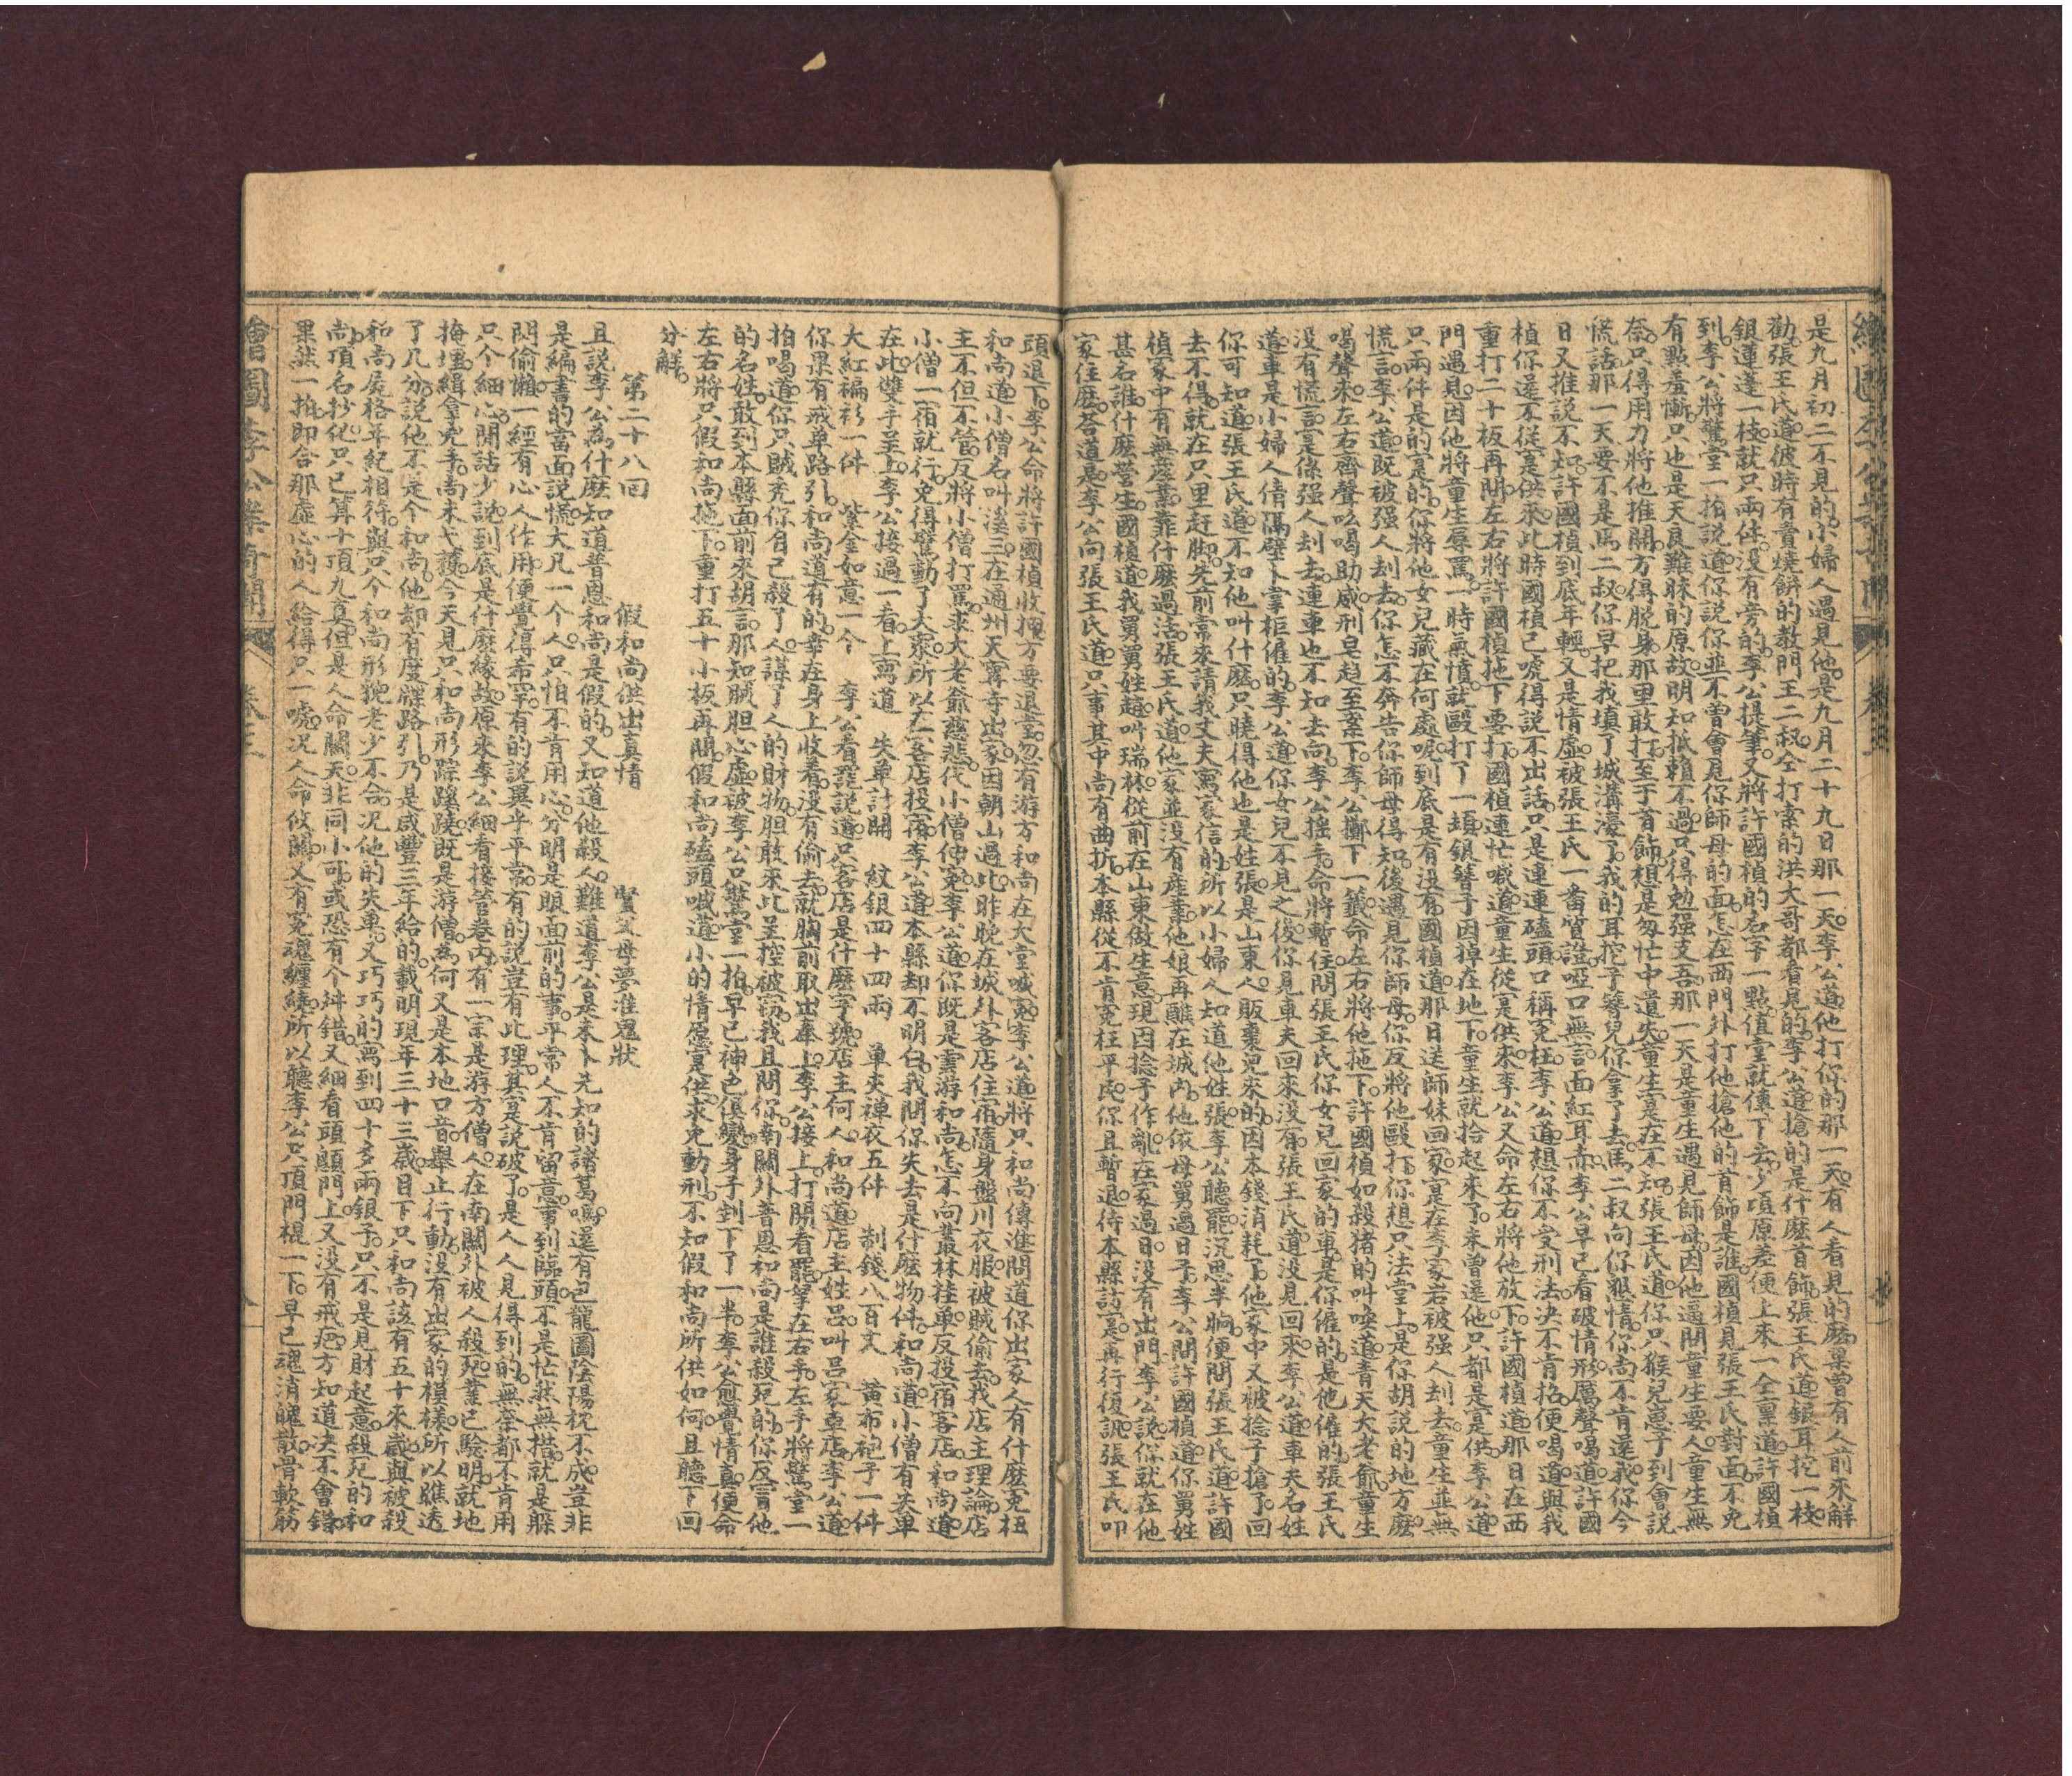 是九月初二不見的小婦人遇見他是九月二十九日那一天李公道他打你的那一天有人看見的麽果曾有人前來解
勸張王氏道彼時有賣燒餅的教門王二叔仝打索的洪大哥都看見的李公道搶的是什麽首飾張王氏道銀耳挖一枝
銀連蓬一枝就只兩件没有旁的李公提筆又將許國楨的名字一點值堂就傳下去少項原差便上來一仝稟道許國楨
到李公將驚堂一拍說道你說你並不曾會見你師母的面怎在西門外打他搶他的首飾是誰國楨見張王氏對面不免
有點羞慚只也是天良難昧的原故明知抵賴不過只得勉强支吾那一天是童生遇見師母因他逼問童生要人童生無
奈只得用力將他推開方得脱身那里敢打至于首飾想是匆忙中遺失童生寔在不知張王氏道你只猴兒崽子到會說
慌話那一天要不是馬二叔你早把我填了城溝濠了我的耳挖子簪兒你拿了去馬二叔向你懇情你尚不肯還我你今
日又推說不知許國楨到底年輕又是情虛被張王氏一番質證啞口無言面紅耳赤李公早已看破情形厲聲喝道許國
楨你還不從寔供來此時國楨已唬得說不出話只是連連磕頭口稱冤枉李公道想你不受刑法决不肯招便喝道與我
重打二十板再問左右將許國楨拖下要打國楨連忙喊道童生從寔供來李公又命左右將他放下許國楨道那日在西
門遇見因他將童生辱罵一時氣憤就毆打了一頓銀簪子因掉在地下童生就拾起來了未曾還他只都是寔供李公道
只兩件是的寔的你將他女兒藏在何處呢到底是有没有國楨道那日送師妹回家寔在李家若被强人刦去童生並無
慌言李公道既被强人刦去你怎不奔告你師母得知後遇見你師母你反將他毆打你想只法堂上是你胡說的地方麽
喝聲來左右齊聲吆喝助威刑皂趕至案下李公擲下一籤命左右將他拖下許國楨如殺猪的叫喚道青天大老爺童生
没有慌言寔係强人刦去連車也不知去向李公摇手命將暫住問張王氏你女兒回家的車是你僱的是他僱的張王氏
道車是小婦人倩隔壁卜掌柜僱的李公道你女兒不見之後你見車夫回來没有張王氏道没見回來李公道車夫名姓
你可知道張王氏道不知他叫什麽只曉得他也是姓張是山東人販棗兒來的因本錢消耗了他家中又被捻子搶了回
去不得就在只里赶脚先前常來請我丈夫寫家信的所以小婦人知道他姓張李公聽罷沉思半晌便問張王氏道許國
楨家中有無產業靠什麽過活張王氏道他家並没有產業他娘再醮在城內他依母舅過日子李公問許國楨道你舅姓
甚名誰什麽營生國楨道我舅舅姓趙叫瑞林從前在山東做生意現因捻子作亂在家過日没有出門李公說你就在他
家住麽荅道是李公向張王氏道只事其中尚有曲折本縣從不肯冤枉平民你且暫退待本縣訪寔再行復訊張王氏叩
頭退下李公命將許國楨收押方要退堂忽有游方和尚在大堂喊冤李公道將只和尚傳進問道你出家人有什麽冤枉
和尚道小僧名叫溪三在通州天寗寺出家因朝山過此昨晚在城外客店住宿隨身盤川衣服被賊偷去我店主理論店
主不但不管反將小僧打罵求大老爺慈悲代小僧伸冤李公道你既是雲游和尚怎不向叢林挂单反投宿客店和尚道
小僧一宿就行免得驚動了大衆所以在客店投宿李公道本縣却不明白我問你失去是什麽物件和尚道小僧有失单
在此雙手呈上李公接過一看上寫道　失单計開　紋銀四十四兩　单夹襌衣五件　制錢八百文　黄布袍子一件
大紅褊衫一件　紫金如意一个　李公看罷說道只客店是什麽字號店主何人和尚道店主姓呂叫呂家車店李公道
你果有戒单路引和尚道有的幸在身上收着没有偷去就胸前取出奉上李公接上打開看罷筆在右手左手將驚堂一
拍喝道你只賊秃你自己殺了人謀了人的財物胆敢來此呈控被窃我且問你南關外普恩和尚是誰殺死的你反冒他
的名姓敢到本縣面前來胡言那知賊胆心虛被李公只驚堂一拍早已神色俱變身子刲下了一半李公愈覺情真便命
左右將只假和尚拖下重打五十小板再問假和尚磕頭喊道小的情愿寔供求免動刑不知假和尚所供如何且聽下回
分解
第二十八回　假和尚供出真情　賢父母夢准鬼狀
且說李公為什麽知道普恩和尚是假的又知道他殺人難道李公是未卜先知的諸葛嗎還有包龍圖陰陽枕不成豈非
是編書的當面說慌大凡一个人只怕不肯用心分明是眼面前的事平常人不肯留意事到臨頭不是忙然無措就是躲
閃偷懶一經有心人作用便覺得希罕有的說異乎平常有的說豈有此理其寔說破了是人人見得到的無奈都不肯用
只个細心閒話少說到底是什麽緣故原來李公細看接管卷內有一宗是游方僧人在南關外被人殺死業已驗明就地
掩埋緝拿兇手尚未弋護今天見只和尚形踪蹊蹺既是游僧為何又是本地口音舉止行動没有出家的模樣所以瞧透
了几分說他不是个和尚他却有度牒路引乃是咸豐三年給的載明現年三十三歲目下只和尚該有五十來歲與被殺
和尚屍格年紀相符與只个和尚形貌老少不合况他的失单又巧巧的寫到四十多兩銀子只不是見財起意殺死的和
尚頂名抄化只已算十頂九真但是人命關天非同小可或恐有个舛錯又細看頭顯門上又没有戒疤方知道决不會錯
果然一拍即合那虛心的人給得只一唬况人命攸關又有冤魂纏繞所以聽李公只頂門棍一下早已魂消魄散骨軟筋
繪圖李公案奇聞　卷三